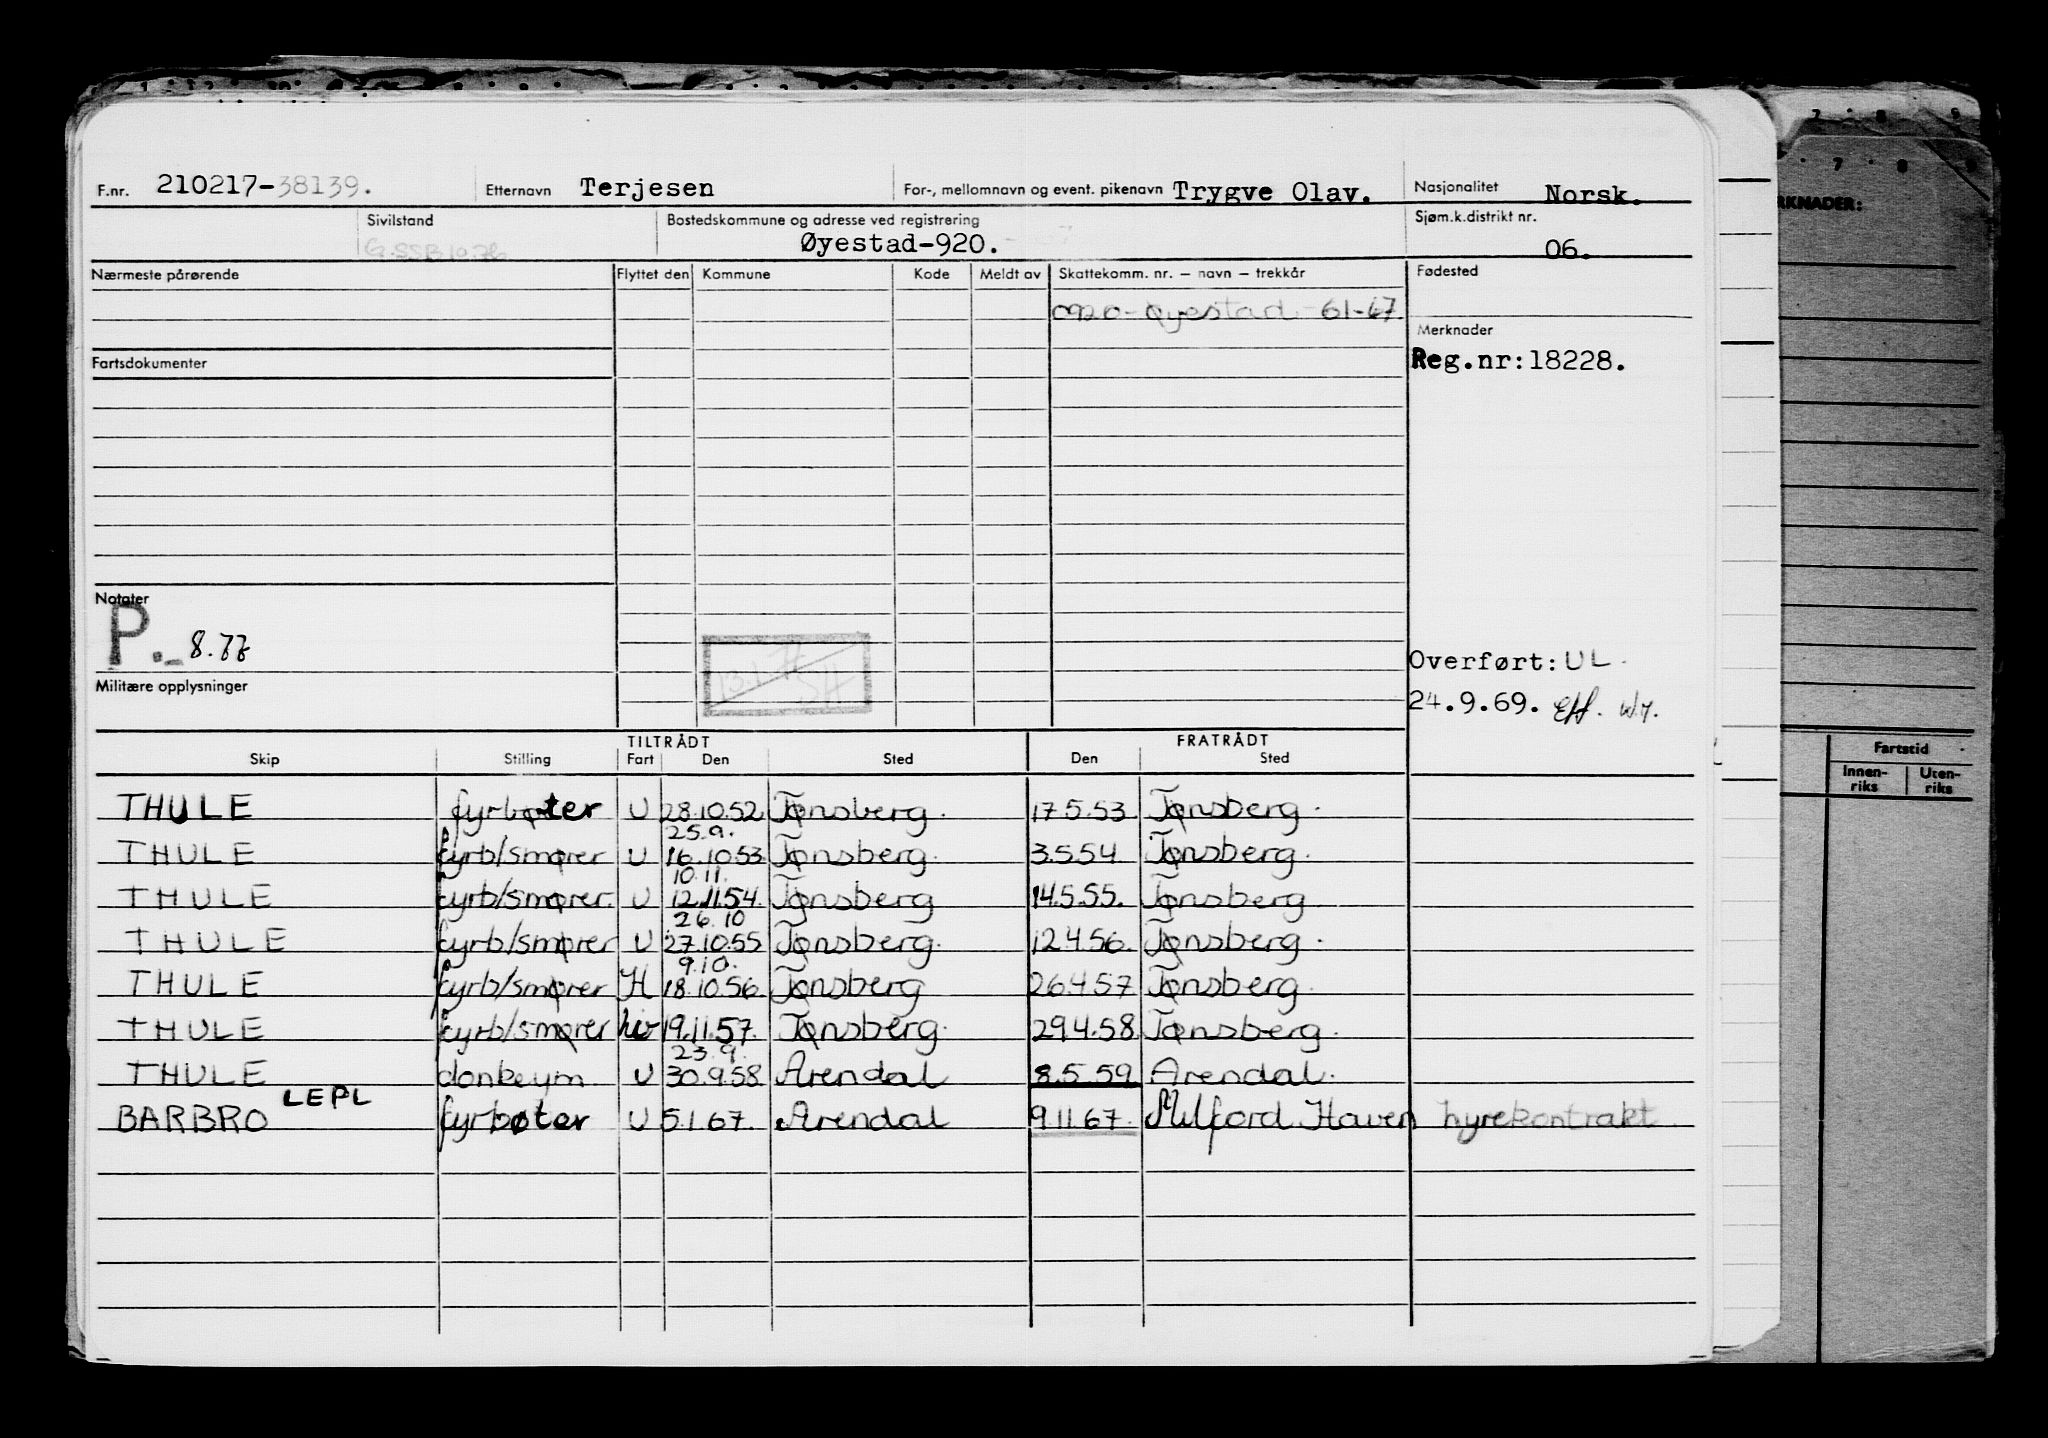 F.nr. 210217-38139. Etternavn Terjesen For-, mellomnavn og event. pikenavn Trygve Olav. Nasjonalitet Norsk.
Sivilstand Bostedskommune og adresse ved registrering Øyestad-920. Sjøm.k.distrikt nr. 06.
Nærmeste pårørende Flyttet den Kommune Kode Meldt av Skattekomm. nr. – navn – trekkår Fødested
0920-Øyestad-61-67
Merknader
Fartsdokumenter Reg.nr:18228.
Notater
P.- 8.77
Overført: UL.
Militære opplysninger 24.9.69. Eff.
TILTRÅDT FRATRÅDT
Skip Stilling Fart Den Sted Den Sted
THULE fyrbøter U 28.10.52 Tønsberg. 17.5.53 Tønsberg.
25.9.
THULE fyrb/smører U 16.10.53 Tønsberg. 3.5.54 Tønsberg.
10.11.
THULE fyrb/smører. U 12.11.54. Tønsberg 14.5.55. Tønsberg
26.10
THULE fyrb/smører U 27.10.55 Tønsberg. 12.4.56. Tønsberg.
9.10.
THULE fyrb/smører H 18.10.56. Tønsberg 26.4.57 Tønsberg.
THULE fyrb/smører hv 19.11.57. Tønsberg. 29.4.58. Tønsberg.
23.9.
THULE donkeym U 30.9.58 Arendal 8.5.59 Arendal.
LEPL
BARBRO fyrbøter U 5.1.67. Arendal 9.11.67. Milford Haven hyrekontrakt
7 8 9
7 8 9
RKNADER:
Fartstid
Innen-
riks
Uten-
riks